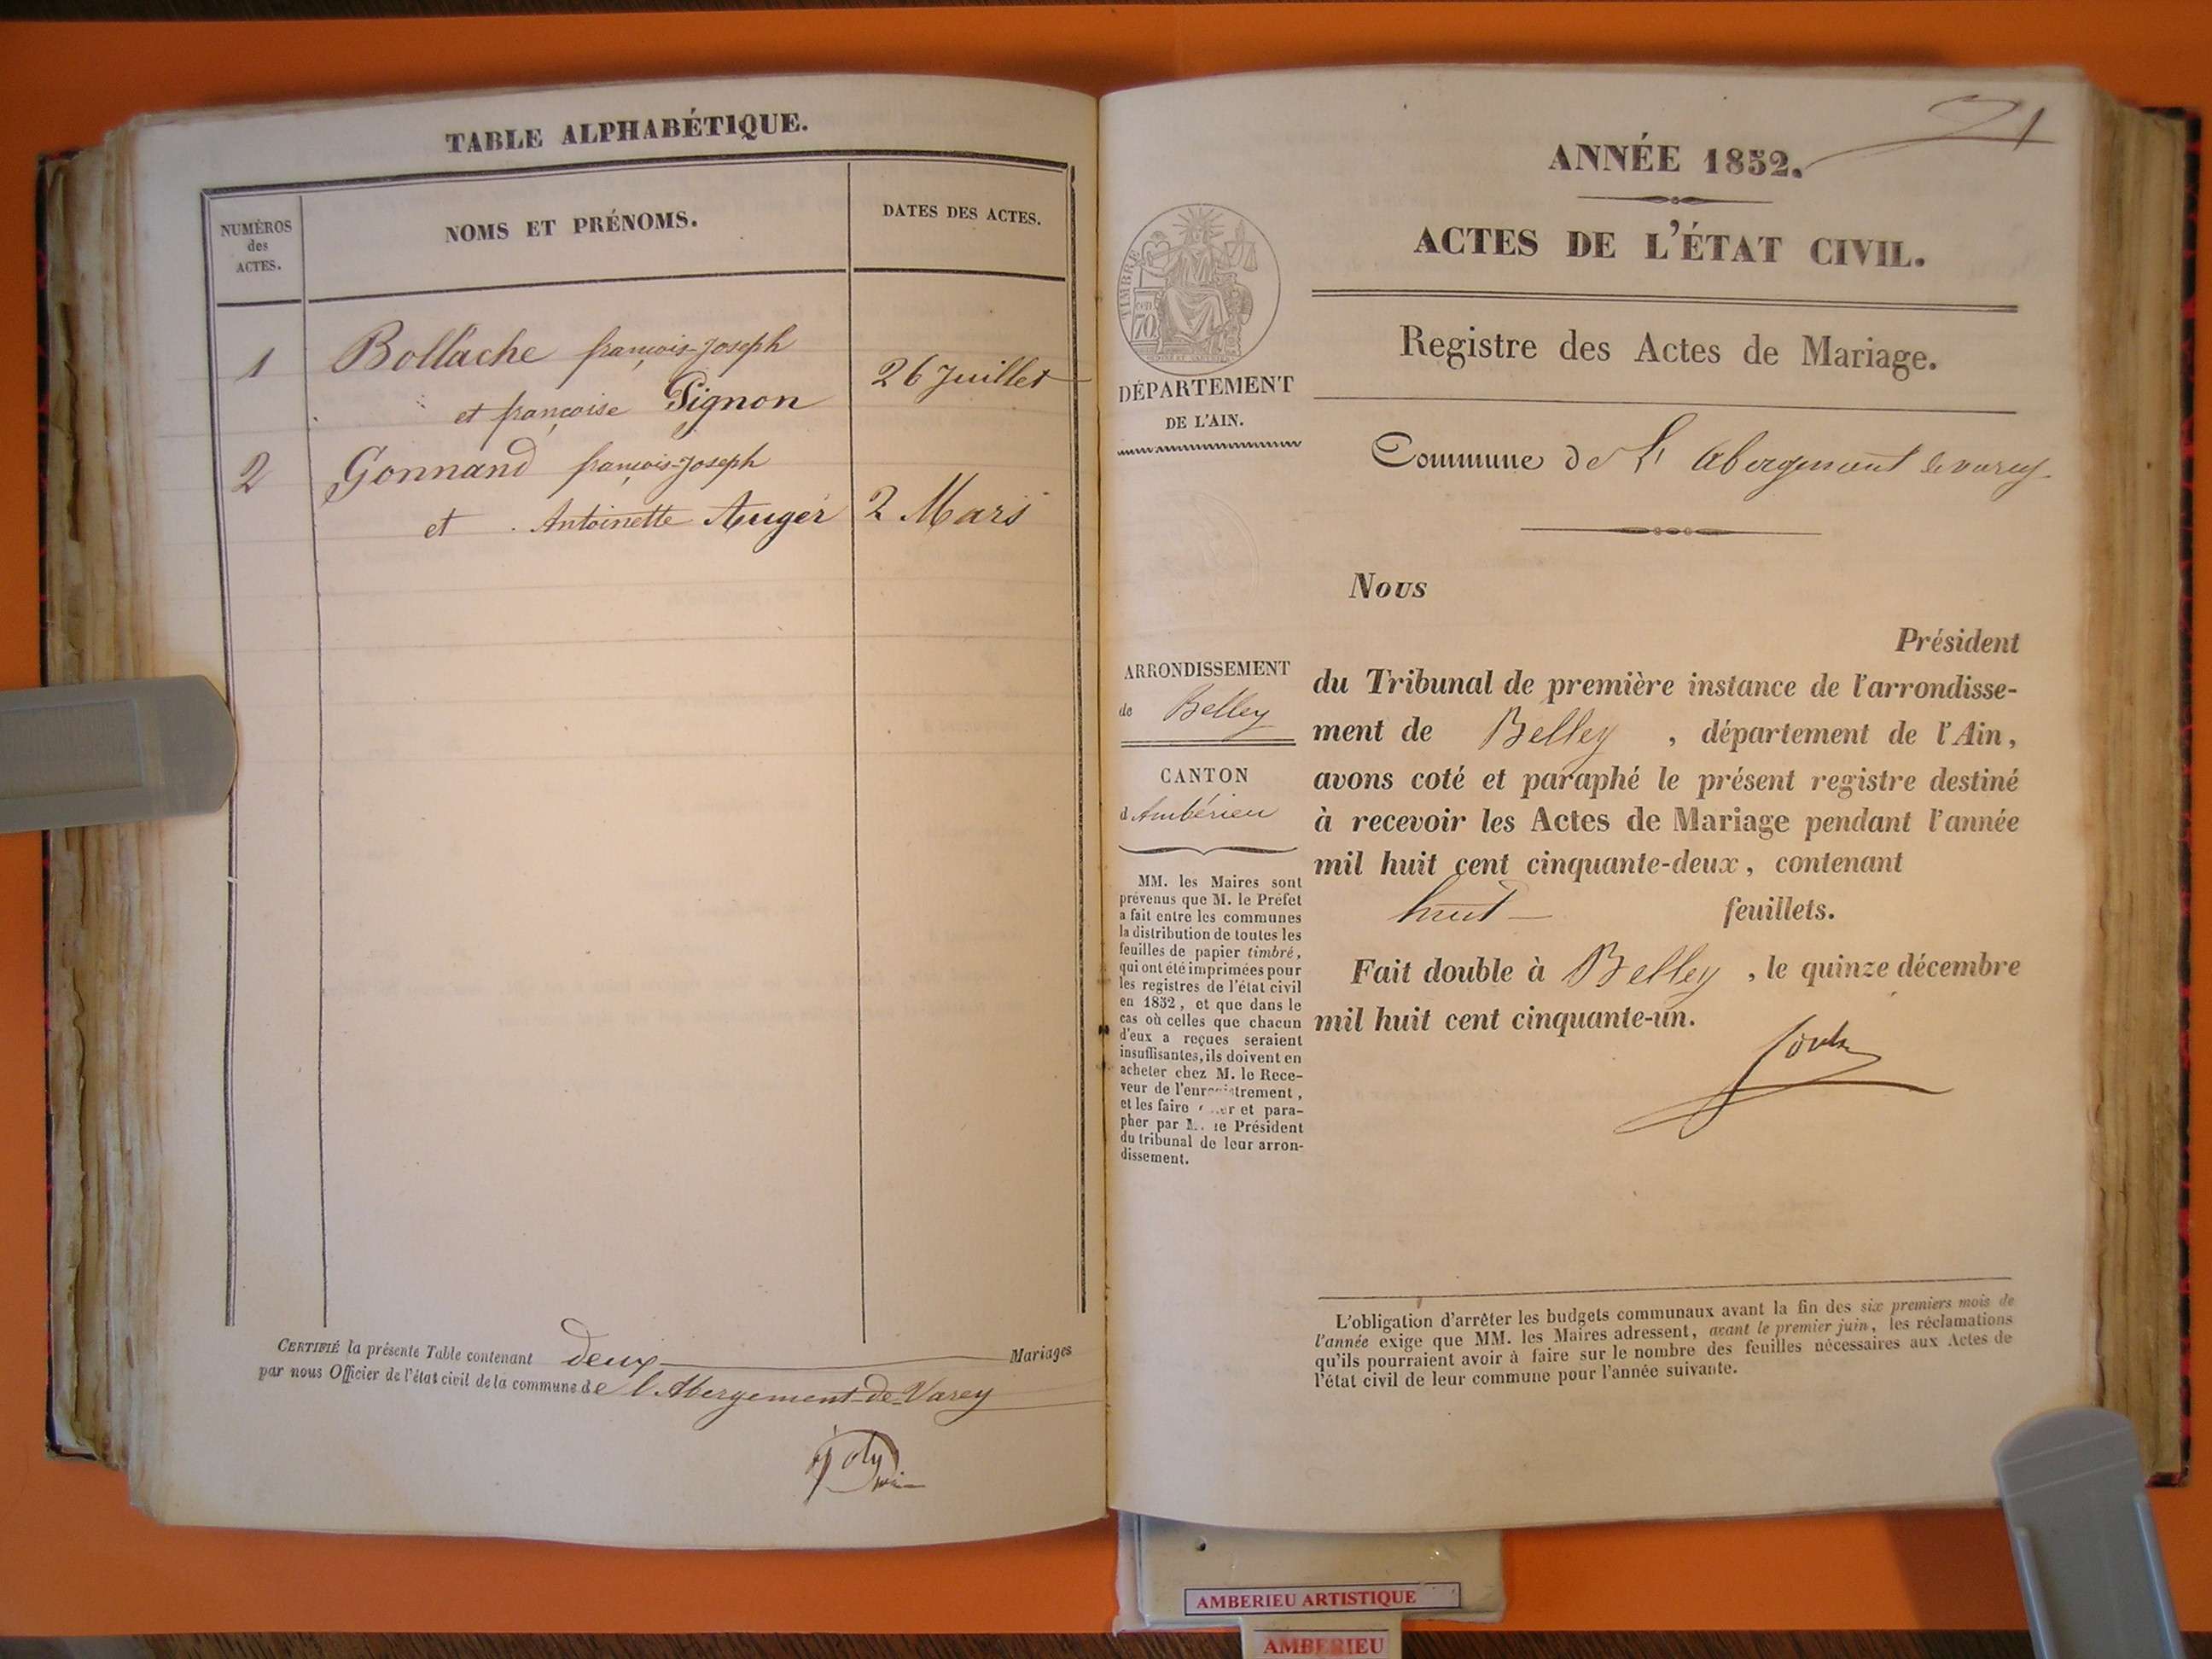 TABLE ALPHABÉTIQUE.
NUMÉROS
des
ACTES.
NOMS ET PRÉNOMS.
DATES DES ACTES.
1
Bollache françois-Joseph
et françoise Pignon
26 Juillet
2
Gonnand françois-Joseph
et Antoinette Auger
2 Mars
CERTIFIÉ la présente Table contenant deux Mariages
par nous Officier de l'état civil de la commune de l'Abergement-de-Varey
ANNÉE 1852.
ACTES DE L'ÉTAT CIVIL.
Registre des Actes de Mariage.
Commune de L'abergement de varey
TIMBRE
70
DÉPARTEMENT
DE L'AIN.
ARRONDISSEMENT
de Belley
CANTON
d'Ambérieu
MM. les Maires sont
prévenus que M. le Préfet
a fait entre les communes
la distribution de toutes les
feuilles de papier timbré,
qui ont été imprimées pour
les registres de l'état civil
en 1852, et que dans le
cas où celles que chacun
d'eux a reçues seraient
insuffisantes, ils doivent en
acheter chez M. le Rece-
veur de l'enregistrement,
et les faire et para-
pher par M. le Président
du tribunal de leur arron-
dissement.
Nous
Président
du Tribunal de première instance de l'arrondisse-
ment de Belley, département de l'Ain,
avons coté et paraphé le présent registre destiné
à recevoir les Actes de Mariage pendant l'année
mil huit cent cinquante-deux, contenant
huit feuillets.
Fait double à Belley, le quinze décembre
mil huit cent cinquante-un.
L'obligation d'arrêter les budgets communaux avant la fin des six premiers mois de
l'année exige que MM. les Maires adressent, avant le premier juin, les réclamations
qu'ils pourraient avoir à faire sur le nombre des feuilles nécessaires aux Actes de
l'état civil de leur commune pour l'année suivante.
AMBERIEU ARTISTIQUE
AMBERIEU